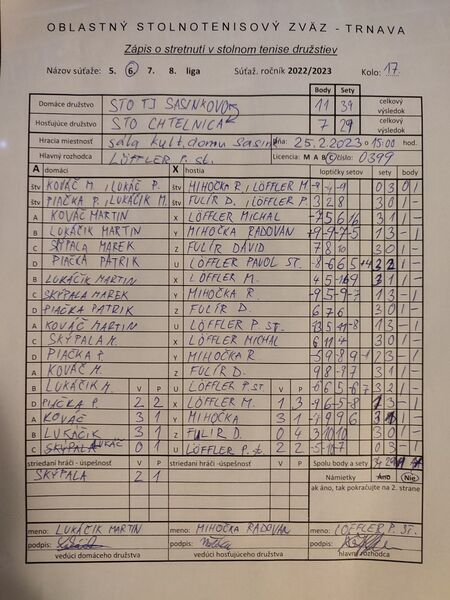 OBLASTNÝ STOLNOTENISOVÝ ZVÄZ - TRNAVA
Zápis o stretnutí v stolnom tenise družstiev
Názov súťaže: 5. 6. 7. 8. liga Súťaž. ročník 2022/2023 Kolo: 17
Body Sety
Domáce družstvo STO TJ SASINKOVO 11 39 celkový výsledok
Hosťujúce družstvo STO CHTELNICA 7 29 celkový výsledok
Hracia miestnosť sála kult. domu dňa: 25.2.2023 o 15:00 hod.
Hlavný rozhodca LÖFFLER P. st. Licencia: M A B C číslo: 0399
A domáci X hostia loptičky setov sety body
štv KOVÁČ M, LUKÁČ P. MIHOČKA R, LÖFFLER M 0 3 0 1
štv PIAČKA P, LUKÁČIK M. FULÍR D. LÖFFLER P 3 2 8 3 0 1 -
A KOVÁČ MARTIN X LÖFFLER MICHAL 3 1 1 -
B LUKÁČIK MARTIN Y MIHOČKA RADOVAN 1 3 - 1
C SKÝPALA MAREK Z FULÍR DÁVID 7 8 10 3 0 1 -
D PIAČKA PATRIK U LÖFFLER PAVOL ST.
B LUKÁČIK MARTIN X LÖFFLER M. 3 1 1 -
C SKÝPALA MAREK Y MIHOČKA R -9 5 -9 -7 1 3 - 1
D PIAČKA PATRIK Z FULÍR D. 6 7 6 3 0 1 -
A KOVÁČ MARTIN U LÖFFLER P. ST. 1 3 - 1
C SKÝPALA M. X LÖFFLER MICHAL 6 11 4 3 0 1 -
D PIAČKA P. Y MIHOČKA R 2 3 - 1
A KOVÁČ M. Z FULÍR D. 3 1 1 -
B LUKÁČIK M. V P U LÖFFLER P. ST V P 3 2 1 -
D PIAČKA P. 2 2 X LÖFFLER M 1 3 1 3 - 1
A KOVÁČ 3 1 Y MIHOČKA 3 1
B LUKÁČIK 3 1 Z FULÍR D. 0 4 3 10 10 3 0 1 -
C LUKÁČ 0 1 U LÖFFLER P. st. 2 2 0 3 - 1
striedaní hráči - úspešnosť V P striedaní hráči - úspešnosť V P Spolu body a sety
SKÝPALA 2 1 Námietky Áno Nie
ak áno, tak pokračujte na 2. strane
meno: LUKÁČIK MARTIN meno: MIHOČKA RADOVAN meno: LÖFFLER P. ST.
podpis: podpis: podpis:
vedúci domáceho družstva vedúci hosťujúceho družstva hlavný rozhodca